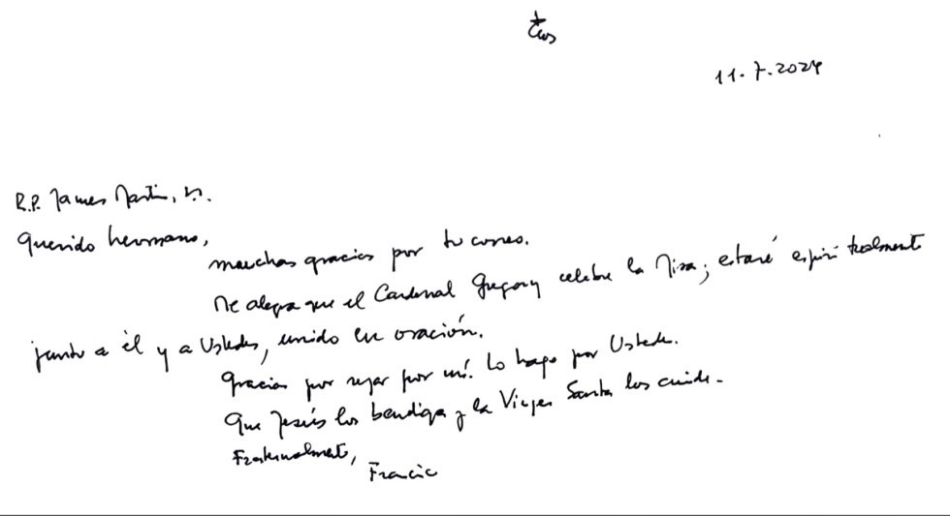 11.7.2024
R.P. James Martin, s.j.
Querido hermano,
muchas gracias por tu correo.
Me alegra que el Cardenal Gregory celebre la Misa; estaré espiritualmente
junto a él y a Ustedes, unido en oración.
Gracias por rezar por mí. Lo hago por Ustedes.
Que Jesús los bendiga y la Virgen Santa los cuide.
Fraternalmente,